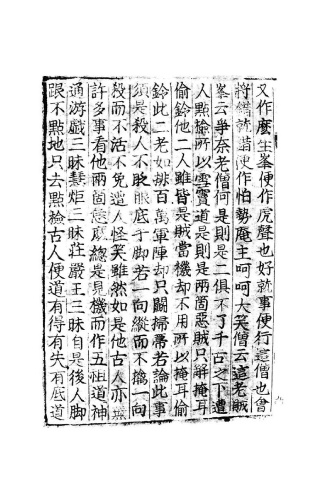 又作麼生峯便作虎聲也好就事便行這僧也會
將錯就錯便作怕勢庵主呵呵大笑僧云這老賊
峯云爭奈老僧何是則是二俱不了千古之下遭
人點撿所以雪竇道是則是兩箇惡賊只解掩耳
偷鈴他二人雖皆是賊當機却不用所以掩耳偷
鈴此二老如排百萬軍陣却只鬪掃箒若論此事
須是殺人不眨眼底手脚若一向縱而不擒一向
殺而不活不免遭人怪笑雖然如是他古人亦無
許多事看他兩箇恁麽總是見機而作五祖道神
通游戲三昧慧炬三昧莊嚴王三昧自是後人脚
跟不點地只去點撿古人便道有得有失有底道